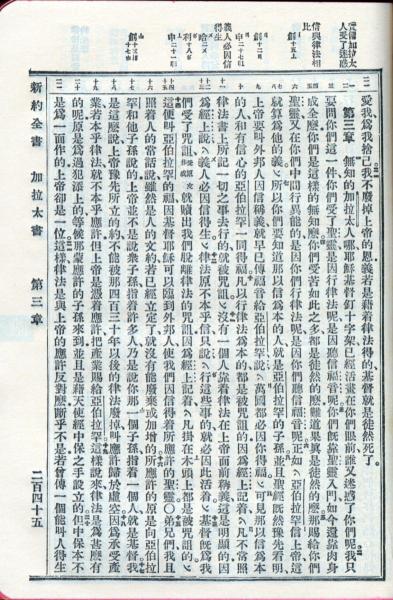 人受了迷惑
信與律法相
比
義人必因信
得生
愛我爲我捨己。我不廢掉上帝的恩義若是靠着律法得的基督就是徒然死了。
第三章 無知的加拉太人哪耶穌基督釘十字架已經活畫在你們眼前誰又迷惑了你們呢我只
要問你們這一件你們受了聖靈是因行律法呢是因聽信福音呢你們既靠聖靈入門如今還靠肉身
成全麼你們是這樣的無知麼你們受苦如此之多都是徒然的麼難道果眞是徒然的麼那賜給你們
聖靈又在你們中間行異能的是因你們行律法呢是因你們聽信福音呢正如〈亞伯拉罕信上帝這
就算爲他的義〉所以你們要知道那以信爲本的人就是亞伯拉罕的子孫並且聖經既然預先看明
上帝要叫外邦人因信稱義就早已傳福音給亞伯拉罕說〈萬國都必因你得福〉可見那以信爲本
的人和有信心的亞伯拉罕一同得福凡以行律法爲本的都是被咒詛的因爲經上記着〈凡不常照
律法書上所記一切之事去行的就被咒詛〉沒有一個人靠着律法在上帝面前稱義這是明顯的因
爲經上說〈義人必因信得生〉律法原不本乎信只說〈行這些事的就必因此活着〉基督既爲我
們受了咒詛受原文作成就贖出我們脫離律法的咒詛因爲經上記着〈凡掛在木頭上都是被咒詛的〉
這便叫亞伯拉罕的福因基督耶穌可以臨到外邦人使我們因信得着所應許的聖靈○弟兄們我且
照着人的常話說雖然是人的文約若已經立定了就沒有能廢棄或加增的所應許的原是向亞伯拉
罕和他子孫說的上帝並不是說衆子孫指着許多人乃是說你那一個子孫指着一個人就是基督我
是這麼說上帝豫先所立的約不能被那四百三十年以後的律法廢掉叫應許歸於虛空因爲承受產
業若本乎律法就不本乎應許但上帝是憑着應許把產業賜給亞伯拉罕這樣說來律法是爲甚麼有
的呢原是爲過犯添上的等候那蒙應許的子孫來到並且是藉天使經中保之手設立的但中保本不
是爲一面作的上帝卻是一位這樣律法是與上帝的應許反對麼斷乎不是若曾傳一個能叫人得生
新約全書 加拉太書 第三章 二百四十五